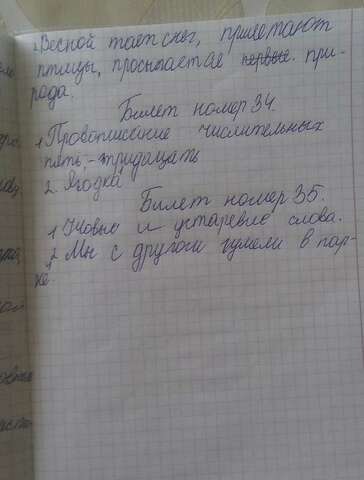 2.Весной тает снег, прилетают
птицы, просыпается первые при-
рода.
Билет номер 34.
1.Правописание числительных
пять - тридцать
2. Ягодка
Билет номер 35.
1 Новые и устаревшие слова.
2 Мы с другом гумели в пар-
ке.